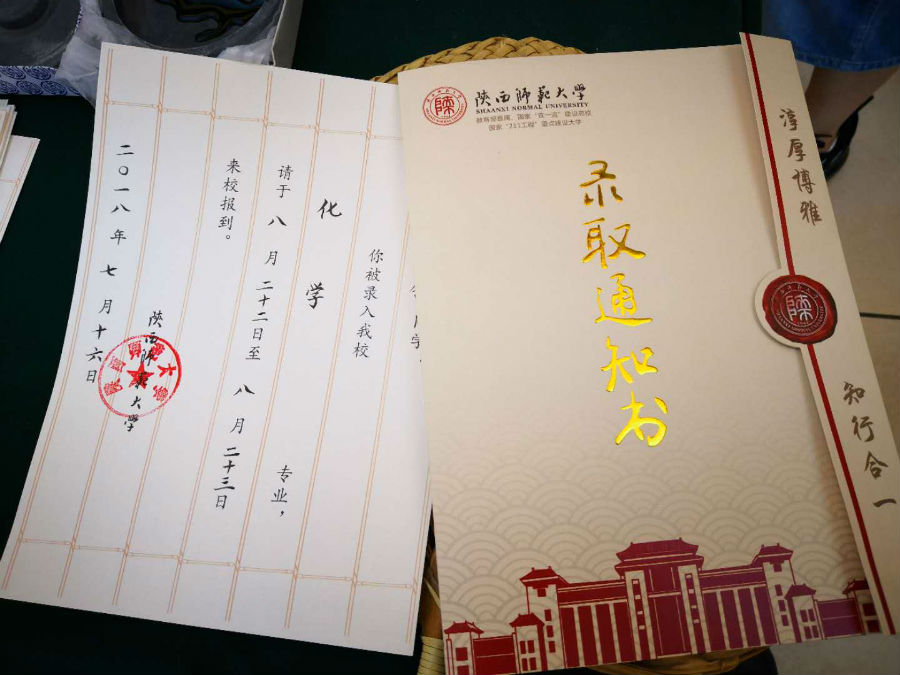 你被录入我校
化学 专业，
请于八月二十二日至八月二十三日
来校报到。
陝西師範大學
二〇一八年七月十六日
陝西師範大學
SHAANXI NORMAL UNIVERSITY
教育部直属、国家“双一流”建设高校
国家“211工程”重点建设大学
录取通知书
淳厚博雅
知行合一